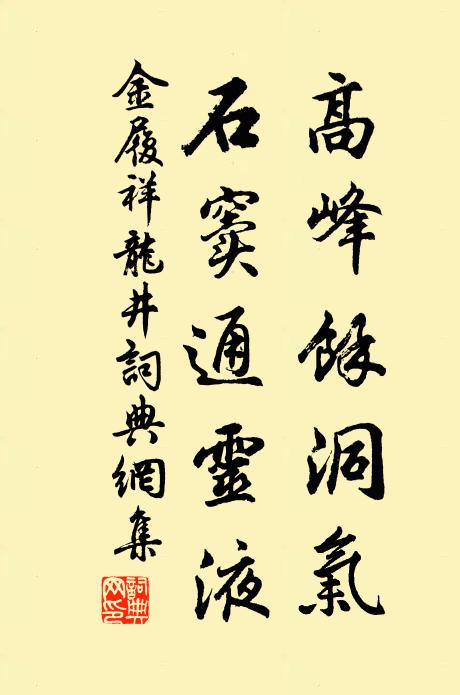 高峰餘洞氣
石竇通靈液
金履祥龍井詞典網集
詞典網印